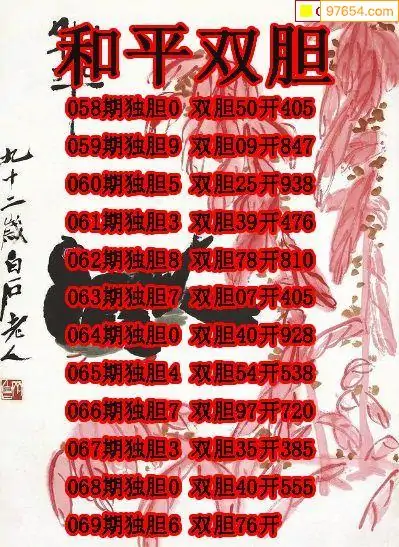 97654.com
和平双胆
058期独胆0 双胆50开405
059期独胆9 双胆09开847
060期独胆5 双胆25开938
061期独胆3 双胆39开476
062期独胆8 双胆78开810
063期独胆7 双胆07开405
064期独胆0 双胆40开928
065期独胆4 双胆54开538
066期独胆7 双胆97开720
067期独胆3 双胆35开385
068期独胆0 双胆40开555
069期独胆6 双胆76开
九十二岁白石老人